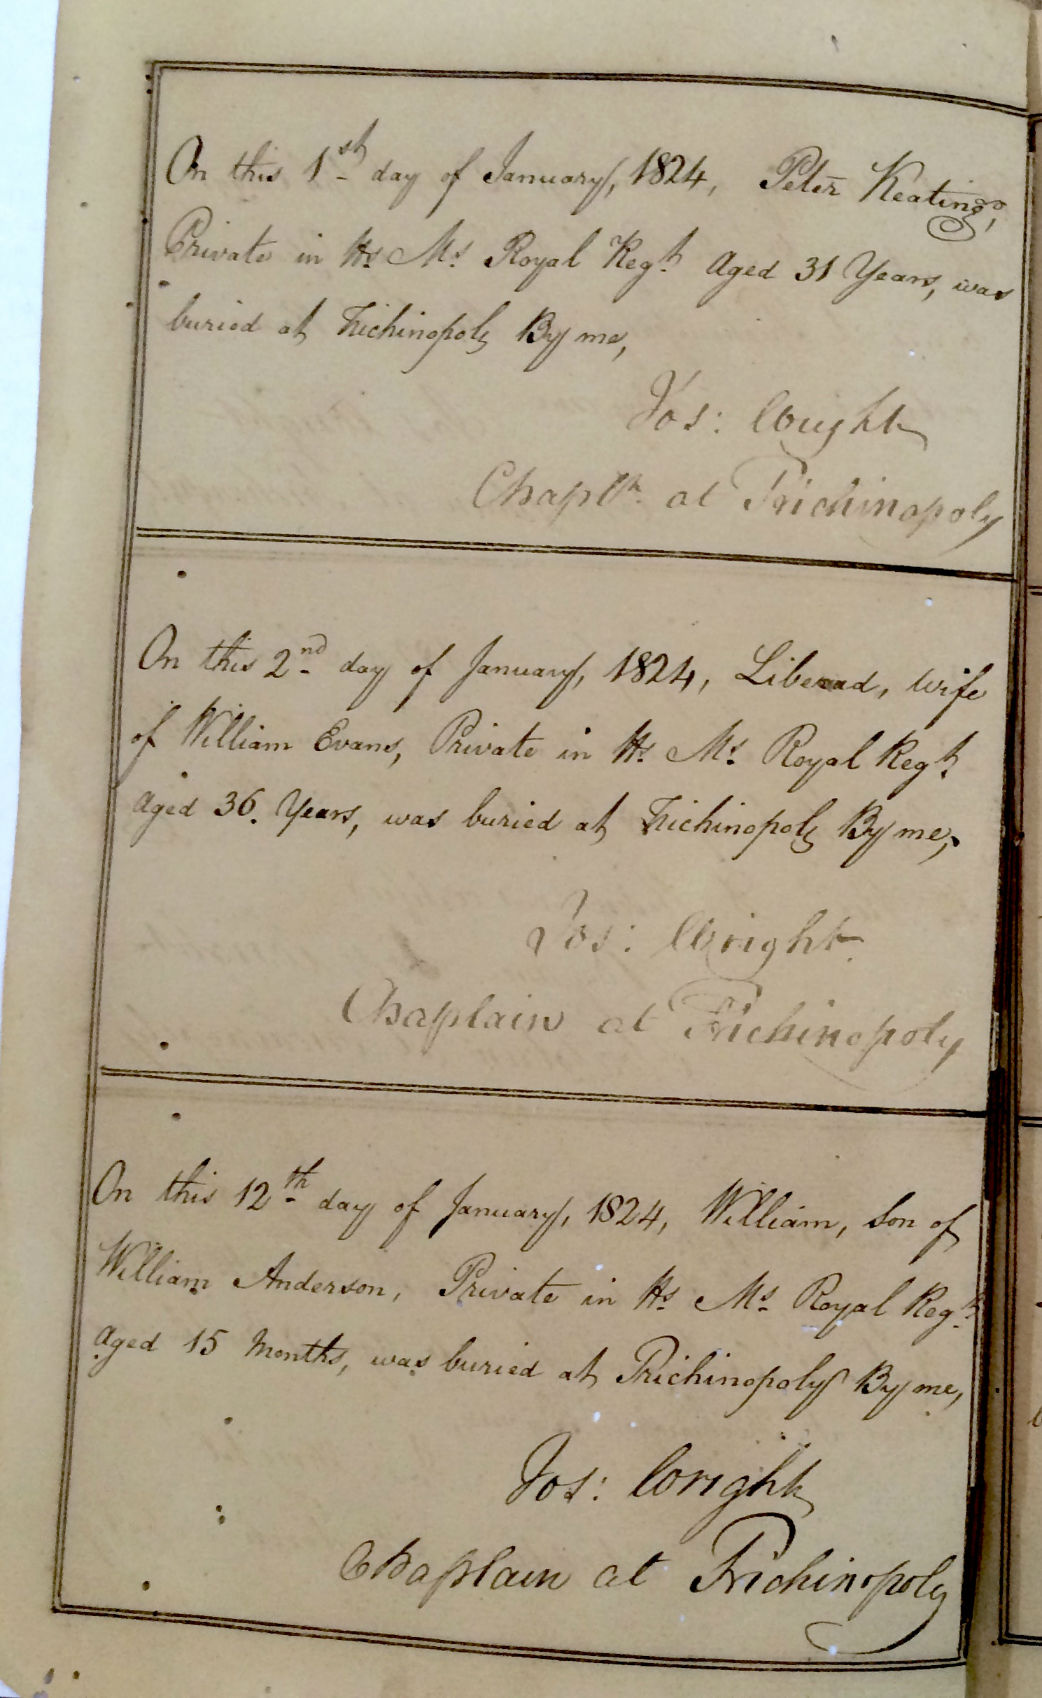 On this 1st day of January, 1824, Peter Keating,
Private in Hs. Ms. Royal Regt. Aged 31 Years, was
buried at Trichinopoly By me,
Jos: Wright
Chapln. at Trichinopoly
On this 2nd day of January, 1824, Liberad, Wife
of William Evans, Private in Hs. Ms. Royal Regt.
Aged 36. Years, was buried at Trichinopoly By me,
Jos: Wright.
Chaplain at Trichinopoly
On this 12th day of January, 1824, William, Son of
William Anderson, Private in Hs. Ms. Royal Regt.
Aged 15 Months, was buried at Trichinopoly By me,
Jos: Wright
Chaplain at Trichinopoly